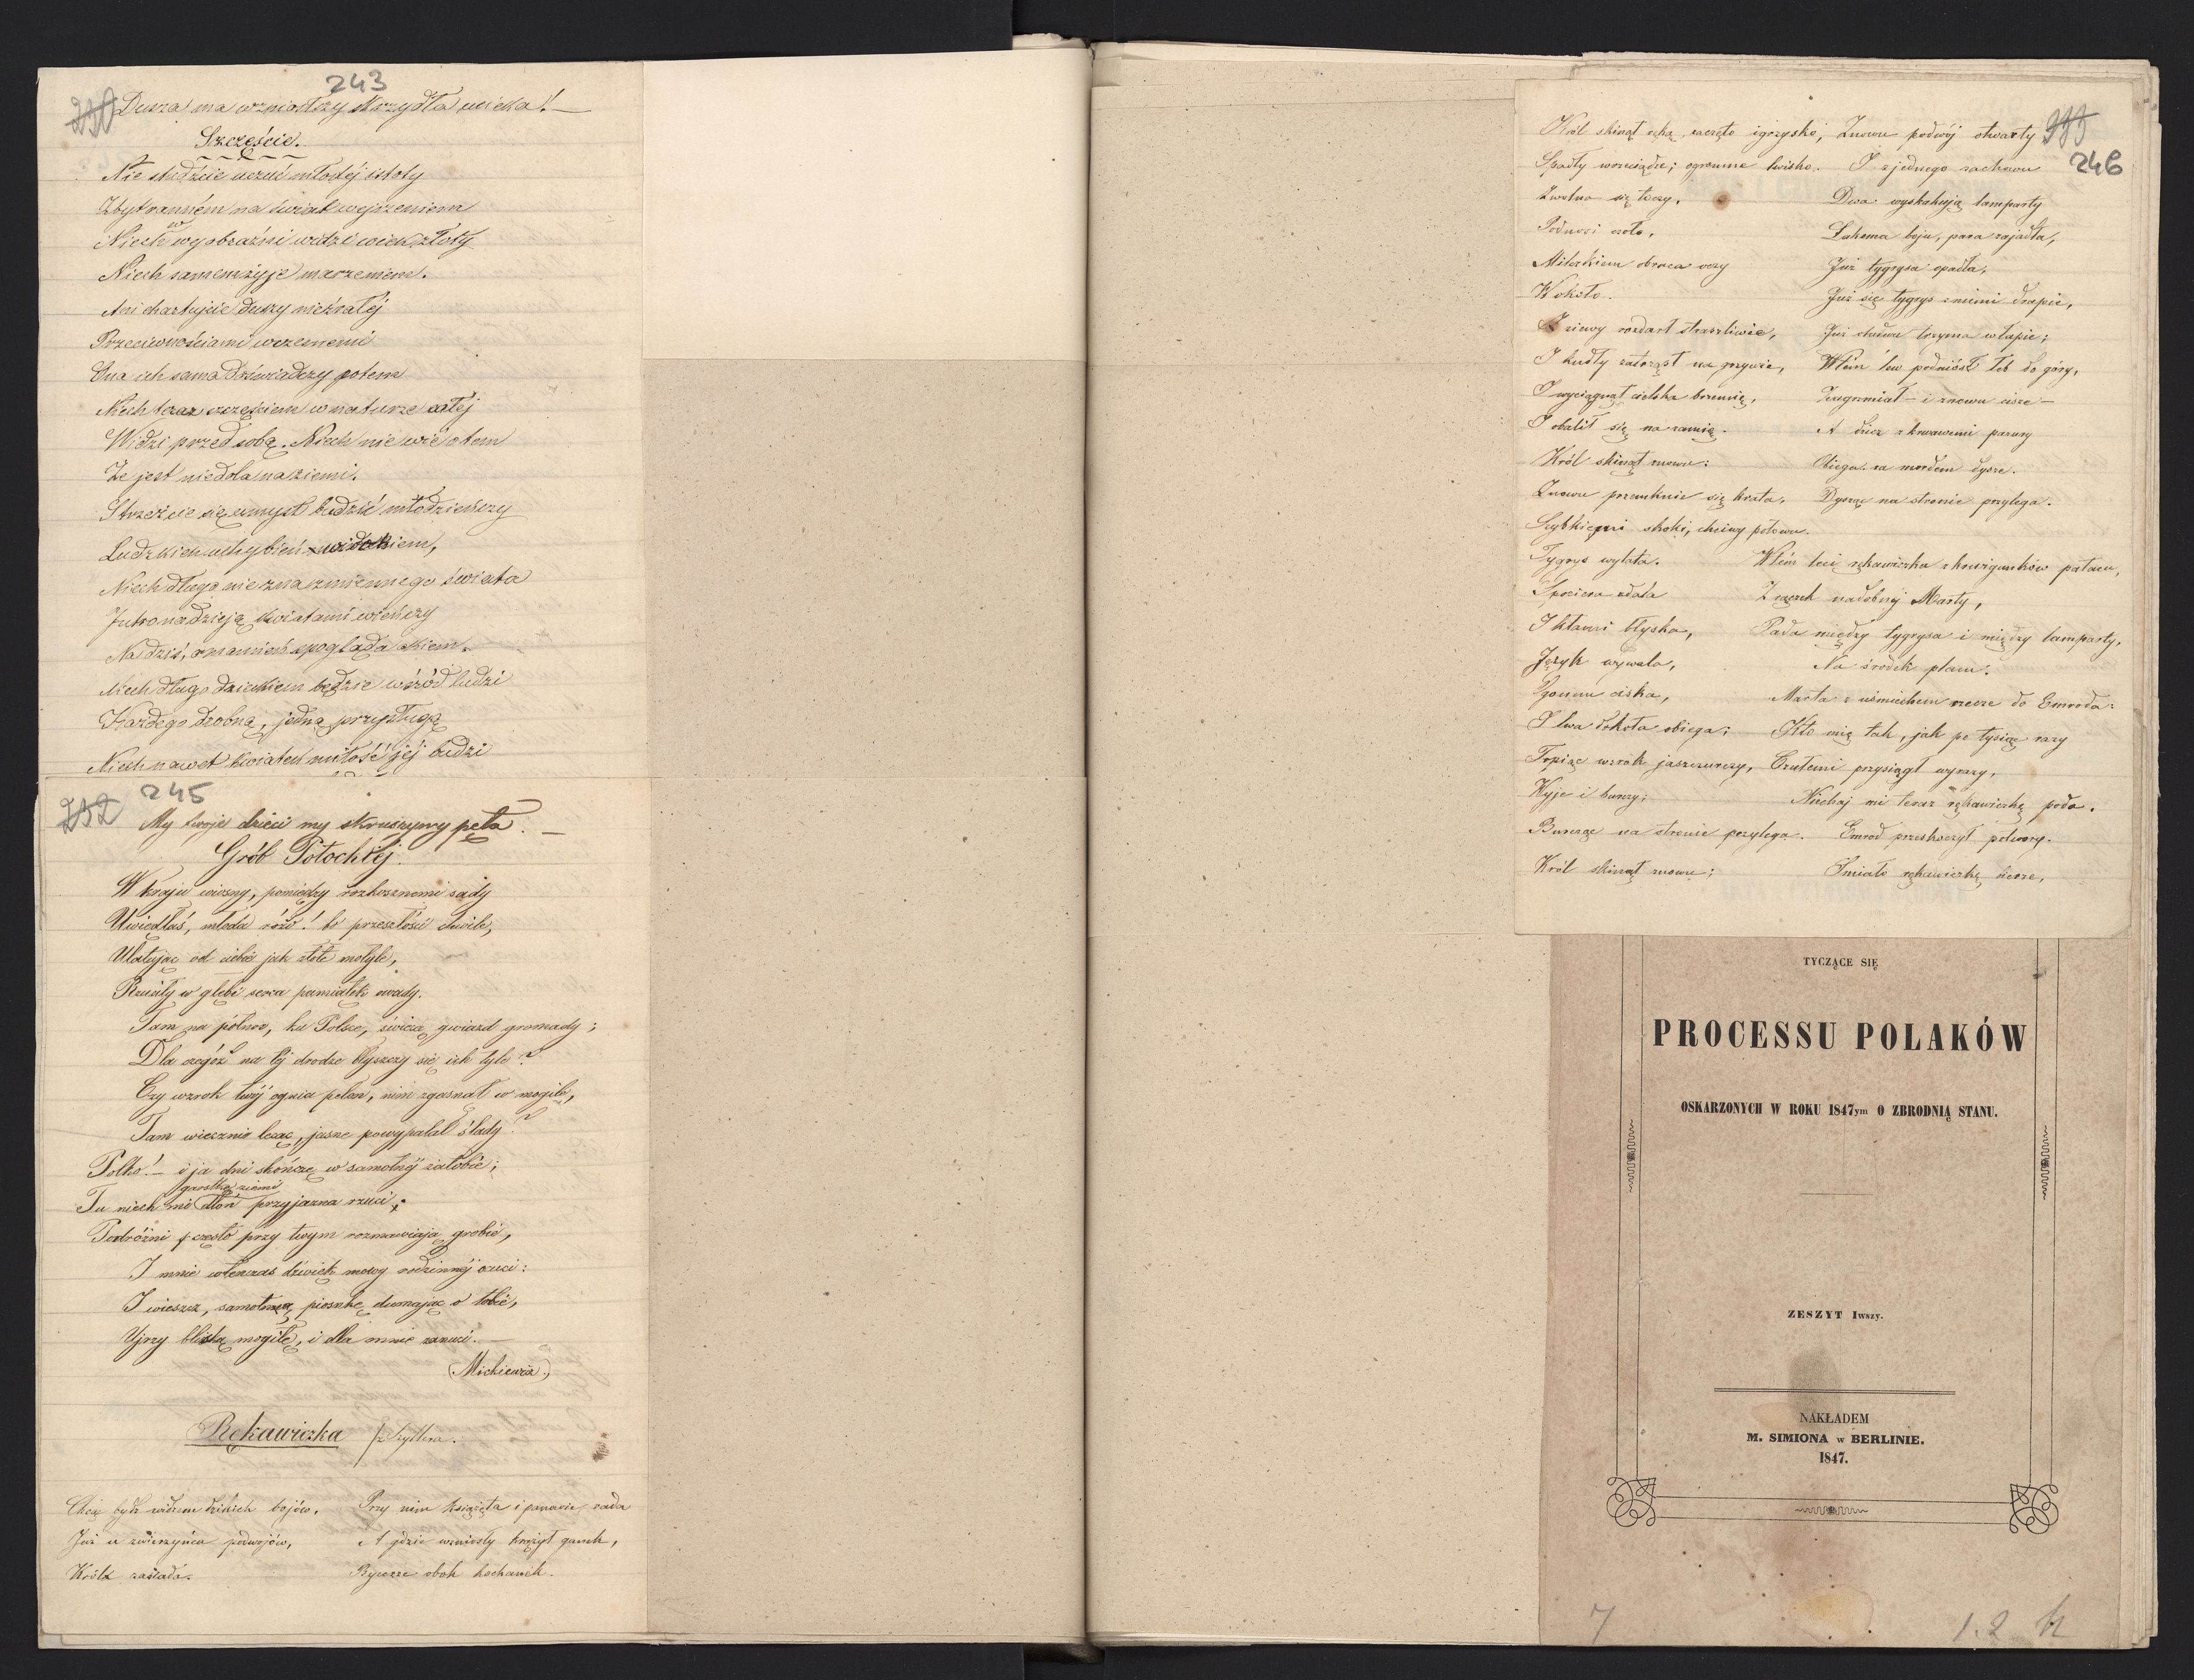 243
Dusza! ma wzniosłszy skrzydła ucieka! —
Szczęście.
Nie studźcie uczuć młodéj istoty
Zbyt ranném na świat wejrzeniem
Niech w wyobraźni widzi wiek złoty
Niech samem żyje marzeniem.
Ani hartujcie duszy nieśmiałéj
Przeciwnościami wczesnemi
Ona ich sama doświadczy potem
Niech teraz szczęściem w naturze całéj
Widzi przed sobą. Niech nie wie o tem
Że jest niedola na ziemi.
Strzeżcie się umysł budzić młodzieńczy
Ludzkich uchybień widokiem,
Niech długo nie zna zmiennego świata
Jutro nadzieją kwiatami wieńczy
Na dziś, spogląda okiem.
Niech długo dzieckiem będzie wśród ludzi
Każdego drobną, jedną przysługą
Niech nawet kwiatek miłość jéj budzi
252
245
My twoje dzieci my skruszymy pęta. —
Grób Potockiéj.
W kraju wiosny, pomiędzy rozkosznemi sady
Uwiędłaś, młoda różo! bo przeszłości chwile,
Ulatując od ciebie jak złote motyle,
Rzuciły w głębi serca pamiątek owady.
Tam na północ, ku Polsce, świecą gwiazd gromady;
Dla czegóż na téj drodze błyszczy się ich tyle?
Czy wzrok twój ognia pełen, nim zgasnął w mogile,
Tam wiecznie lecąc, jasne powypalał ślady?
Polko! — i ja dni skończę w samotnéj żałobie;
garstkę ziemi
Tu niech mi dłoń przyjazna rzuci;
Podróżni często przy twym rozmawiają grobie,
I mnie wtenczas dźwięk mowy rodzinnéj ocuci:
I wieszcz, samotną piosnkę dumając o tobie,
Ujrzy bliską mogiłę, i dla mnie zanuci. —
(Mickiewicz.)
Rękawiczka (z Szyllera.
Chcąc bydź widzem dzikich bojów, Przy nim książęta i panowie rada
Już u zwierzyńca podwojów, A gdzie wzniosły krążył ganek,
Król zasiada. Rycerze obok kochanek.
246
Król skinął ręką, zaczęto igrzysko, Znowu podwój otwarty
Spadły wrzeciądze; ogromne lwisko. I z jednego zachowu
Zwolna się toczy, Dwa wyskakują lamparty
Podnosi czoło, Łakoma boju, para zajadła,
Milczkiem obraca oczy Już tygrysa opadła,
Wokoło. Już się tygrys z niemi drapie,
I ziewy rozdarł straszliwie, Już obudwu trzyma w łapie;
I kudły zatrząsł na grzywie, Wtém lew podniósł łeb do góry,
I wyciągnął cielska brzemię, Zagrzmiał — i znowu cisze —
I obalił się na ziemię. A dzicz z krwawemi pazury
Król skinął znowu: Obiega. za mordem dysze.
Znowu przemknie się krata, Dysząc na stronie przylega.
Szybkiemi skoki, chciwy połowu.
Tygrys wylata. Wtém leci rękawiczka z krużganków pałacu,
Spoziera zdala Z rączek nadobnéj Marty,
I kłami błyska, Pada między tygrysa i między lamparty,
Język wywala, Na środek placu.
Ogonem ciska, Marta z uśmiechem rzecze do Emroda:
I lwa dokoła obiega; Kto mię tak, jak po tysiąc razy
Topiąc wzrok jaszczurczy, Czułemi przysiągł wyrazy,
Wyje i burczy; Niechaj mi teraz rękawiczkę poda.
Burcząc na stronie przylega. Emrod przeskoczył potwory.
Król skinął znowu; Śmiało rękawiczkę bierze,
TYCZĄCE SIĘ
PROCESSU POLAKÓW
OSKARZONYCH W ROKU 1847ym O ZBRODNIĄ STANU.
ZESZYT Iwszy.
NAKŁADEM
M. SIMIONA w BERLINIE.
1847.
7
1. 2